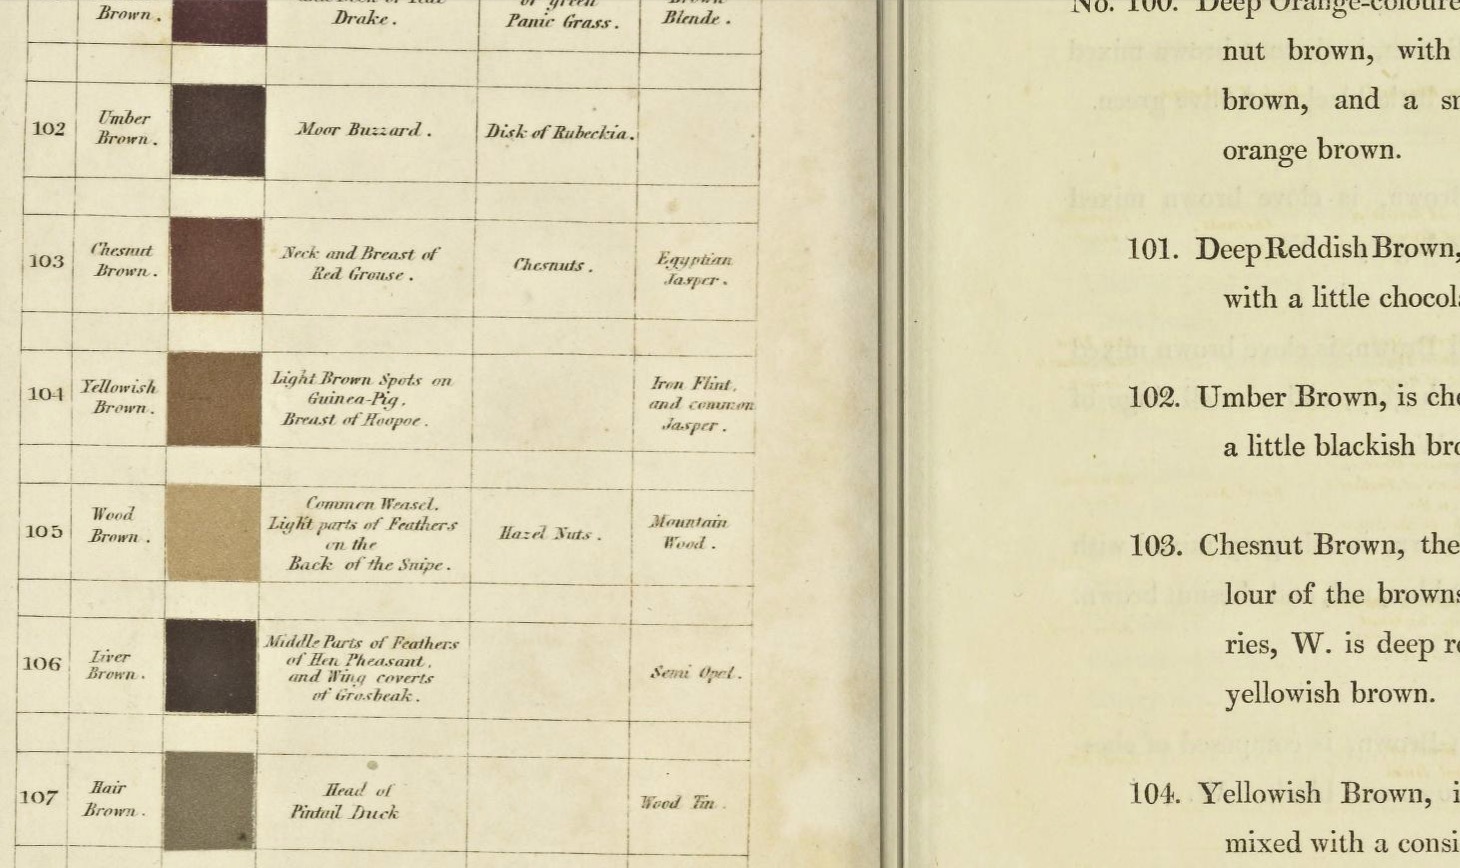 Brown.
Drake.
Panic Grass.
Blende.
102
Umber
Brown.
Moor Buzzard.
Disk of Rubeckia.
103
Chesnut
Brown.
Neck and Breast of
Red Grouse.
Chesnuts.
Egyptian
Jasper.
104
Yellowish
Brown.
Light Brown Spots on
Guinea-Pig.
Breast of Hoopoe.
Iron Flint.
and common
Jasper.
105
Wood
Brown.
Common Weasel.
Light parts of Feathers
on the
Back of the Snipe.
Hazel Nuts.
Mountain
Wood.
106
Liver
Brown.
Middle Parts of Feathers
of Hen Pheasant.
and Wing coverts
of Grosbeak.
Semi Opal.
107
Hair
Brown.
Head of
Pintail Duck
Wood Tin.
No. 100. Deep Orange-coloure
nut brown, with
brown, and a sm
orange brown.
101. Deep Reddish Brown,
with a little chocol
102. Umber Brown, is che
a little blackish bro
103. Chesnut Brown, the
lour of the browns
ries, W. is deep re
yellowish brown.
104. Yellowish Brown, i
mixed with a consi